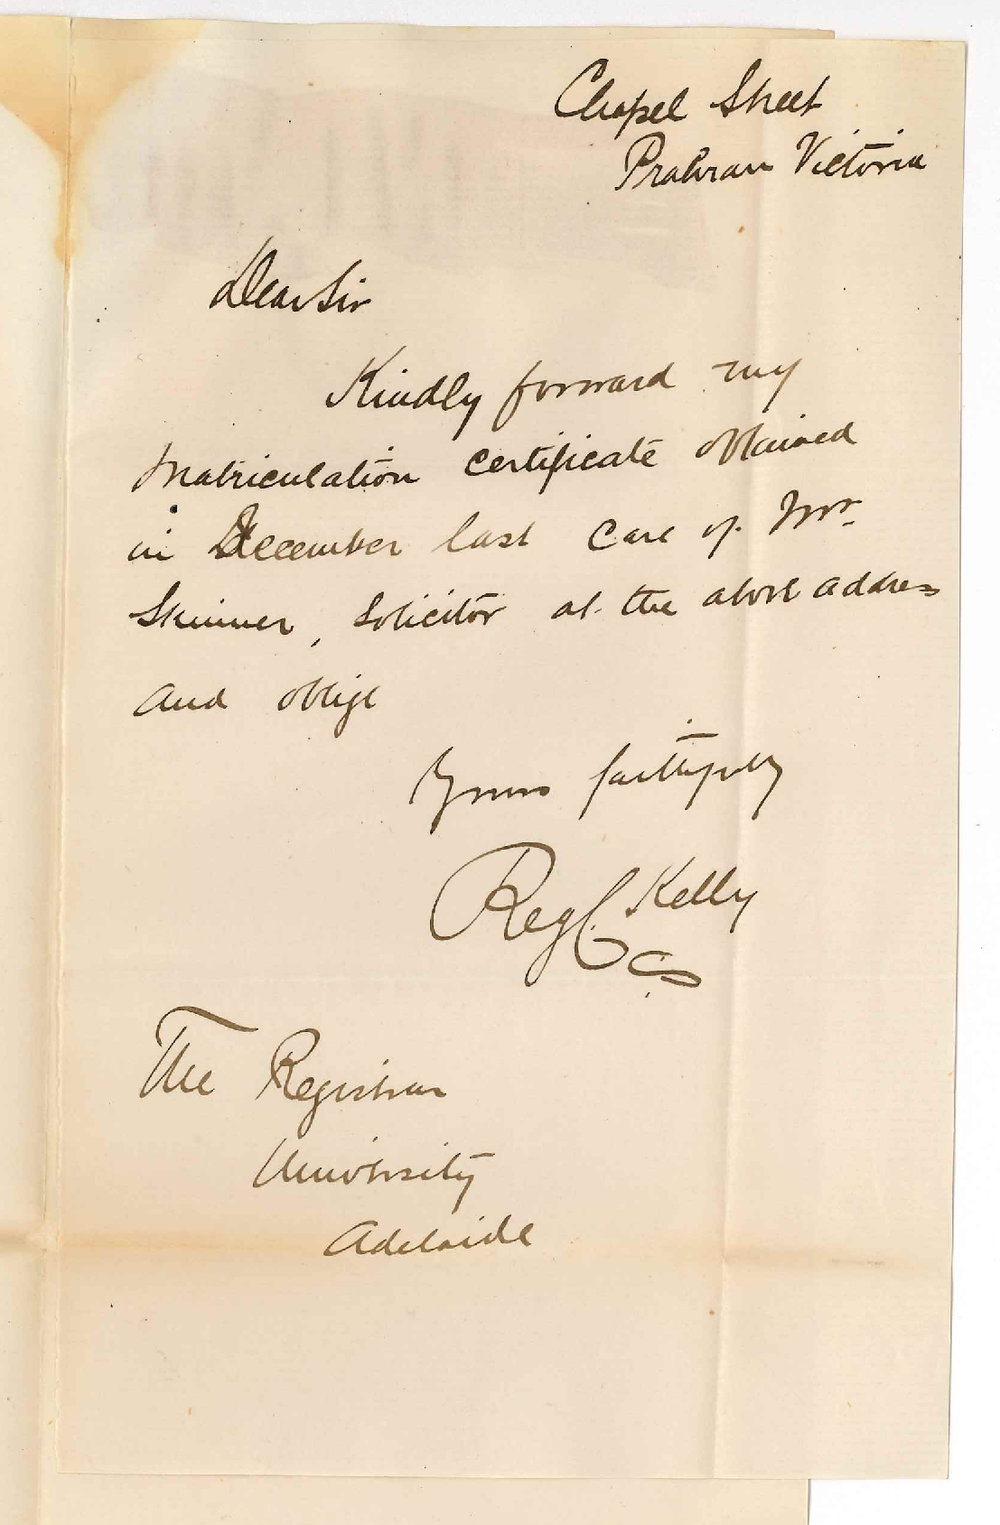 Chapel Street
Prahran Victoria
Dear Sir
Kindly forward my
Matriculation Certificate obtained
in December last care of Mr.
Skinner, Solicitor at the above address
and oblige
Yours faithfully
Reg C. Kelly
The Registrar
University
Adelaide